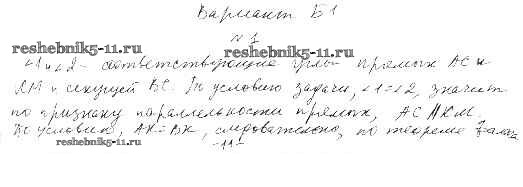 Вариант Б1
№ 1
reshebnik5-11.ru reshebnik5-11.ru
∠1 и ∠2 - соответствующие углы прямых АС и
КМ и секущей ВС. По условию задачи, ∠1=∠2, значит
по признаку параллельности прямых, АС ∥ КМ.
По условию, АК=ВК, следовательно, по теореме Фалеса
reshebnik5-11.ru
-11-